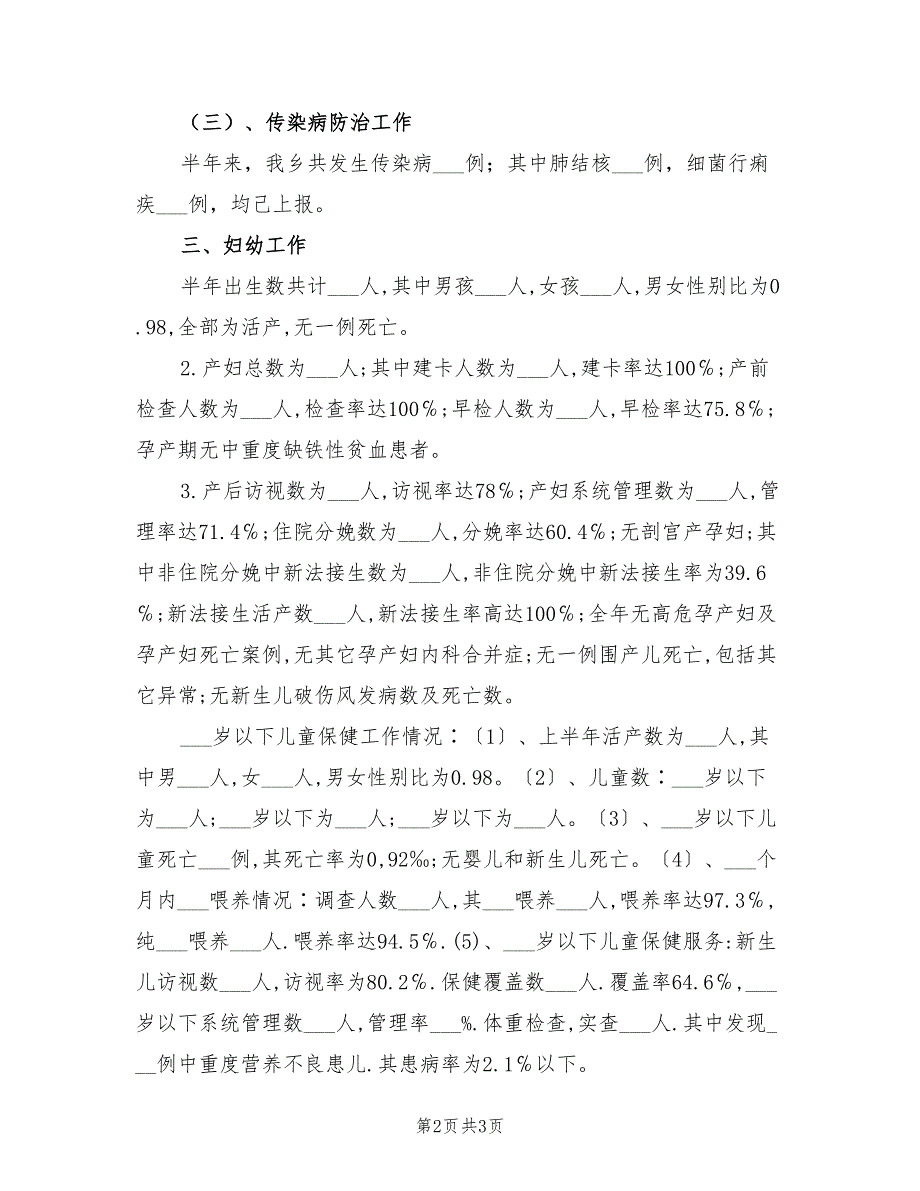 （三）、传染病防治工作
半年来，我乡共发生传染病___例；其中肺结核___例，细菌行痢
疾___例，均己上报。
三、妇幼工作
半年出生数共计___人,其中男孩___人,女孩___人,男女性别比为0
.98,全部为活产,无一例死亡。
2.产妇总数为___人;其中建卡人数为___人,建卡率达100℅;产前
检查人数为___人,检查率达100℅;早检人数为___人,早检率达75.8℅;
孕产期无中重度缺铁性贫血患者。
3.产后访视数为___人,访视率达78℅;产妇系统管理数为___人,管
理率达71.4℅;住院分娩数为___人,分娩率达60.4℅;无剖宫产孕妇;其
中非住院分娩中新法接生数为___人,非住院分娩中新法接生率为39.6
℅;新法接生活产数___人,新法接生率高达100℅;全年无高危孕产妇及
孕产妇死亡案例,无其它孕产妇内科合并症;无一例围产儿死亡,包括其
它异常;无新生儿破伤风发病数及死亡数。
___岁以下儿童保健工作情况∶〔1〕、上半年活产数为___人,其
中男___人,女___人,男女性别比为0.98。〔2〕、儿童数∶___岁以下
为___人;___岁以下为___人;___岁以下为___人。〔3〕、___岁以下儿
童死亡___例,其死亡率为0,92‰;无婴儿和新生儿死亡。〔4〕、___个
月内___喂养情况∶调查人数___人,其___喂养___人,喂养率达97.3℅,
纯___喂养___人.喂养率达94.5℅.(5)、___岁以下儿童保健服务:新生
儿访视数___人,访视率为80.2℅.保健覆盖数___人.覆盖率64.6℅,___
岁以下系统管理数___人,管理率___%.体重检查,实查___人.其中发现_
__例中重度营养不良患儿.其患病率为2.1℅以下。
第2页共3页